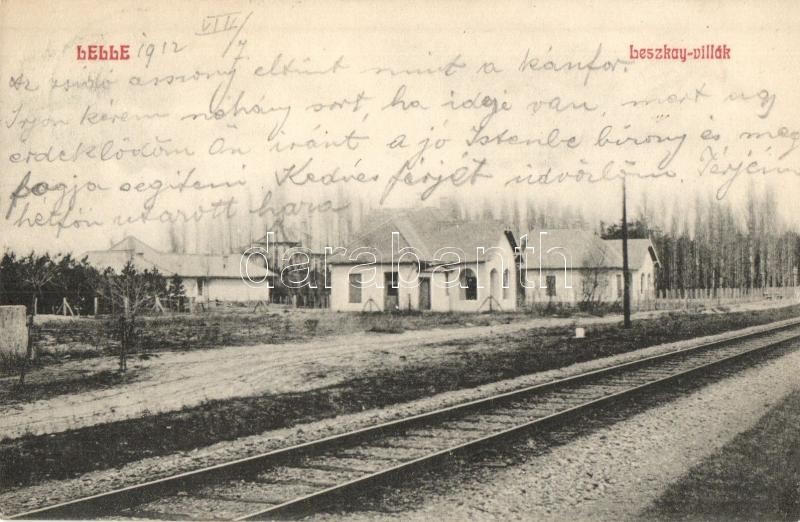 LELLE 1912 VIII/7
Leszkay-villák
Az zsidó asszony eltünt mint a kánfor.
Irjon kérem néhány sort, ha ideje van, mert ugy
érdeklődöm Ön iránt, a jó Istenbe bizony és meg
fogja segíteni Kedves férjét üdvözlöm. Férjem
hétfőn utazott haza
darabanth.com